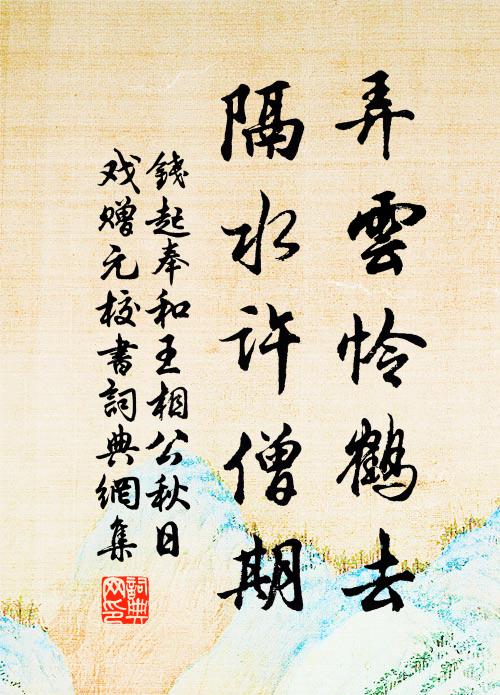 弄雲怜鶴去
隔水許僧期
錢起奉和王相公秋日
戏赠元校書詞典網集
詞典網印